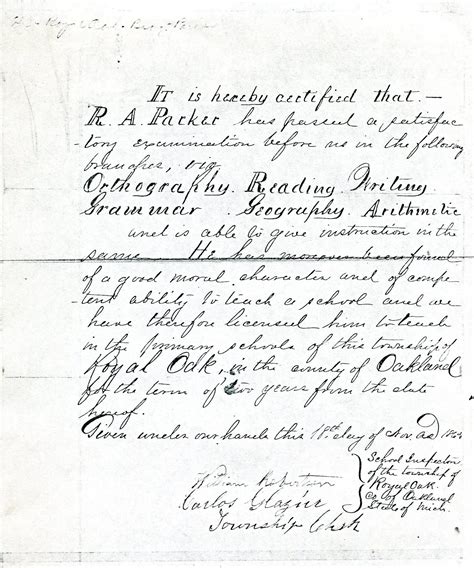 It is hereby certified that.—
R. A. Parker has passed a satisfac
-tory examination before us in the following
branches, viz
Orthography. Reading. Writing.
Grammar. Geography. Arithmetic
and is able to give instruction in the
same. He has moreover been found
of a good moral character and of compe
tent ability to teach a school and we
have therefore licensed him to teach
in the primary schools of this township of
Royal Oak, in the county of Oakland
for the term of two years from the date
hereof.
Given under our hands this day of Nov AD
William Robertson
Carlos
Township Clerk
School Inspectors
of the township of
Royal Oak.
Co of Oakland
State of Mich.